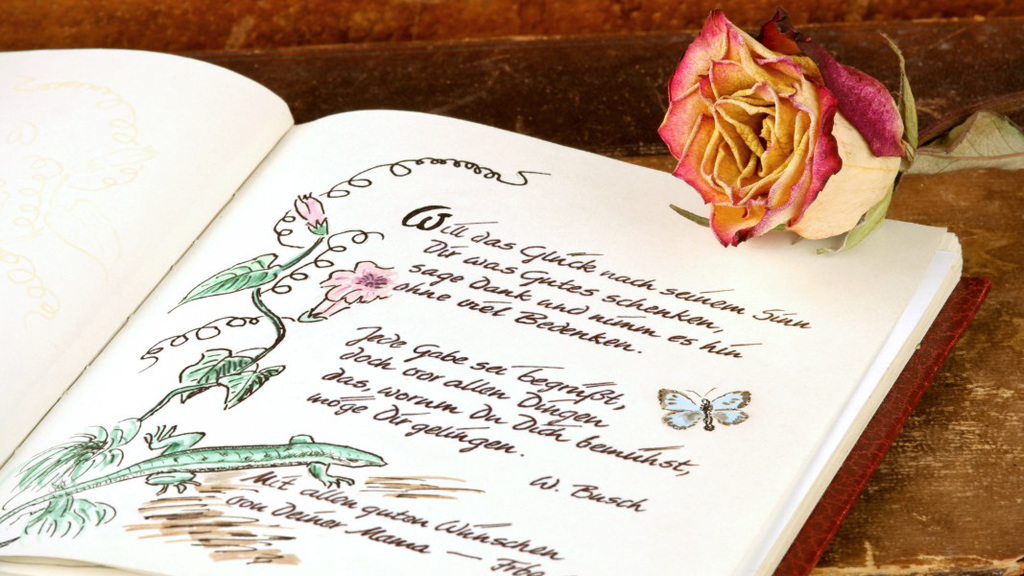 Will das Glück nach seinem Sinn
Dir was Gutes schenken,
sage Dank und nimm es hin
ohne viel Bedenken.
Jede Gabe sei begrüßt,
doch vor allen Dingen
das, worum Du Dich bemühst,
möge Dir gelingen.
W. Busch
Mit allen guten Wünschen
von Deiner Mama –